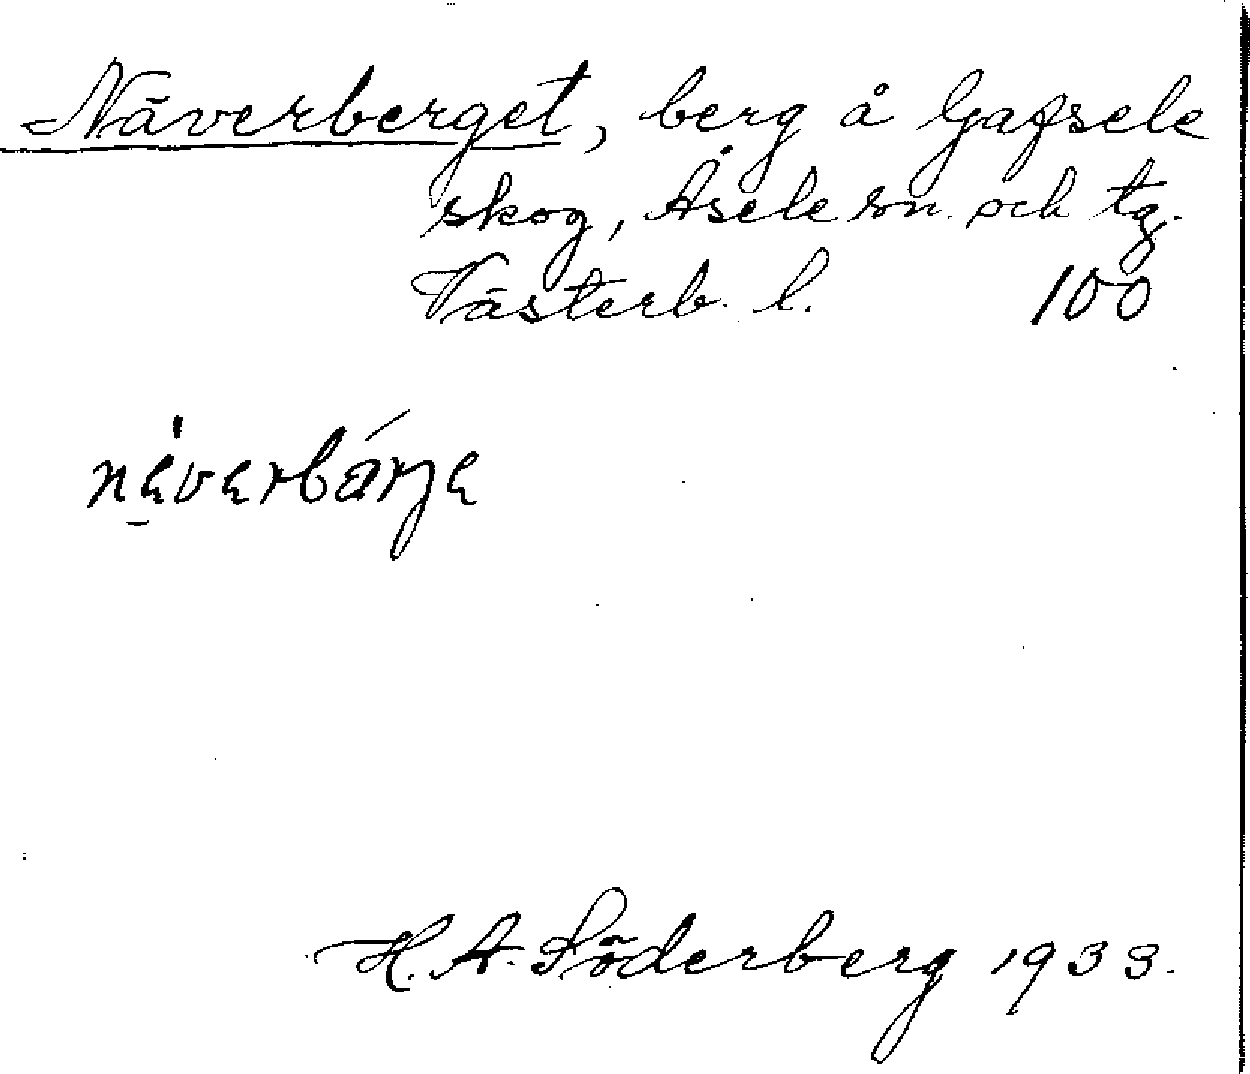 Näverberget, berg å Gafsele
skog, Åsele sn. och tg.
Västerb. l. 100
näverbärje
H. A. Söderberg 1933.